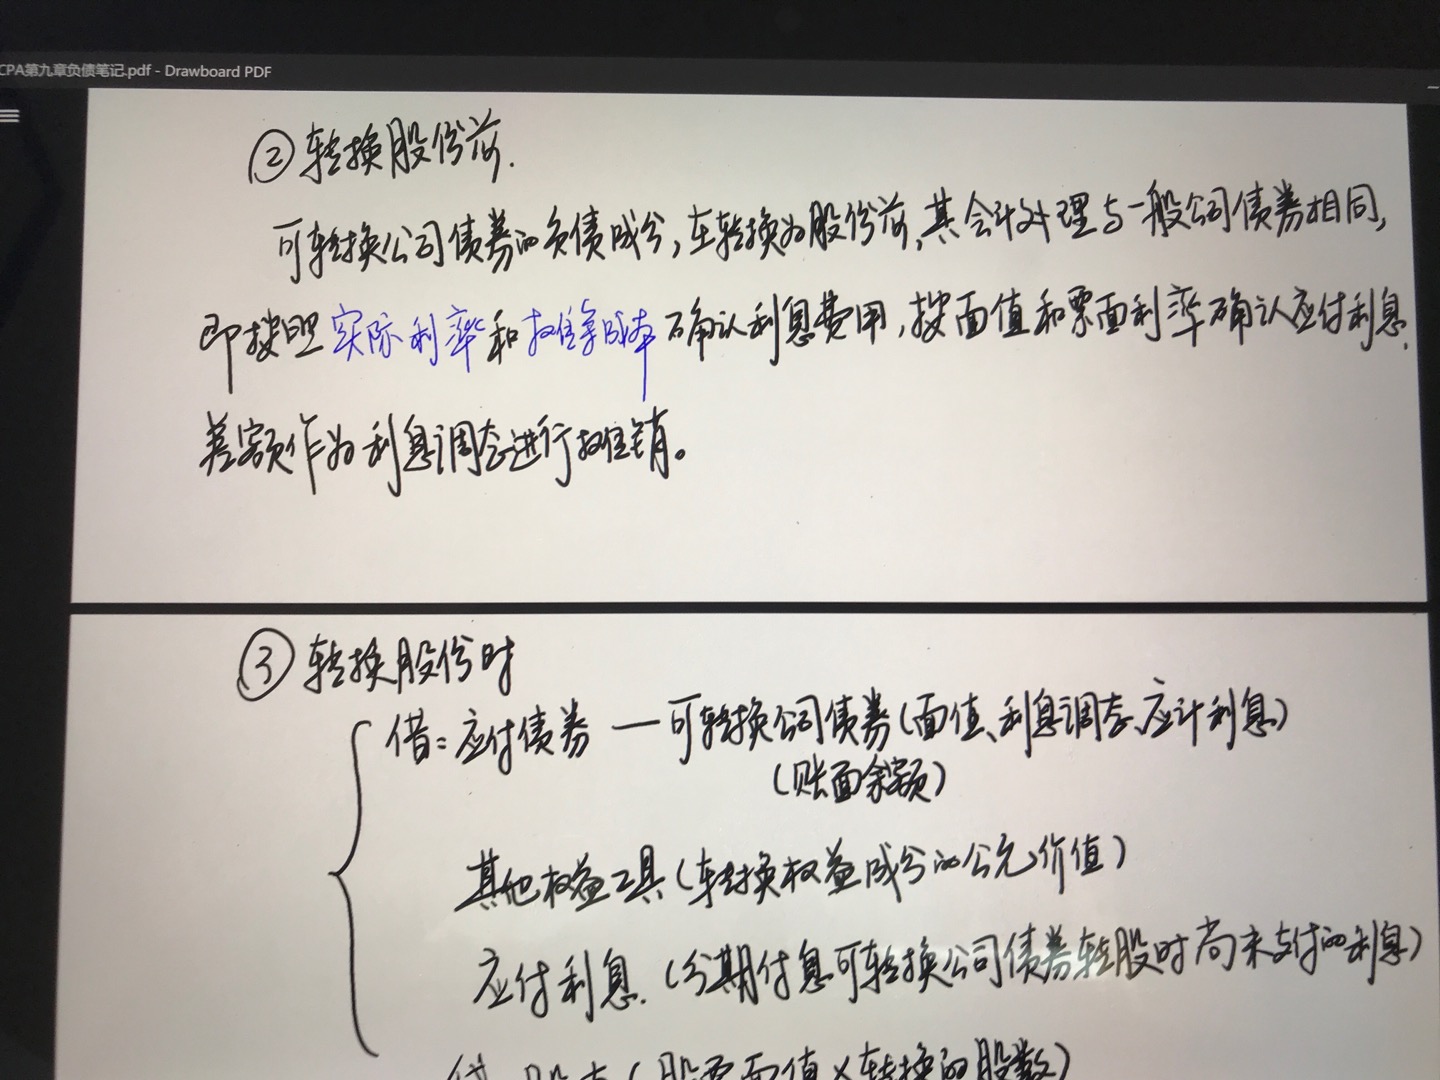 CPA第九章负债笔记.pdf - Drawboard PDF
②转换股份前.
可转换公司债券的负债成分,在转换为股份前,其会计处理与一般公司债券相同,
即按照实际利率和摊余成本确认利息费用,按面值和票面利率确认应付利息.
差额作为利息调整进行摊销。
③转换股份时
借:应付债券—可转换公司债券(面值、利息调整、应计利息)
(账面余额)
其他权益工具(转换权益成分的公允价值)
应付利息.(分期付息可转换公司债券转股时尚未支付的利息)
贷:股本(股票面值×转换的股数)